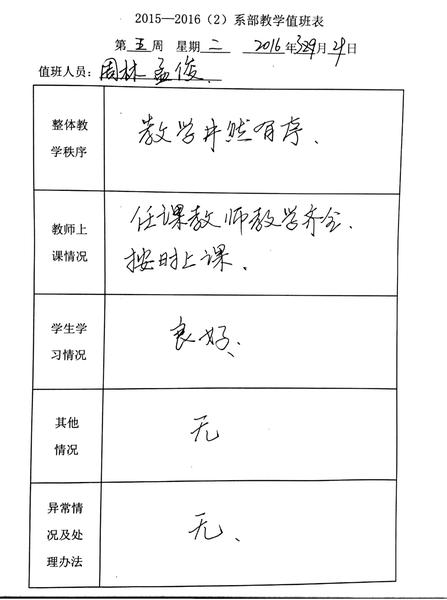 2015—2016（2）系部教学值班表
第 五 周 星期 二 2016 年 3 月 日
值班人员：周林 孟俊
整体教
学秩序
教学井然有序、
教师上
课情况
任课教师教学齐全、
按时上课、
学生学
习情况
良好、
其他
情况
无
异常情
况及处
理办法
无、